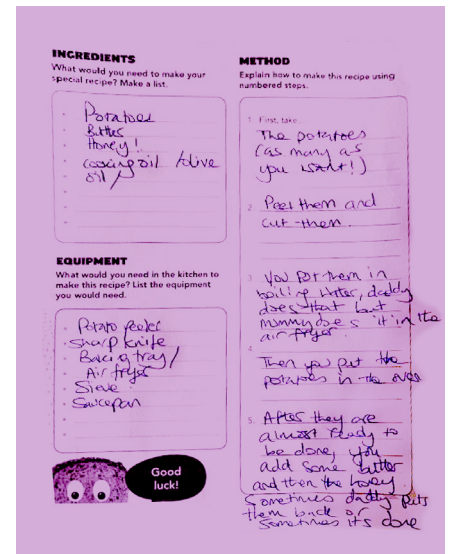 INGREDIENTS
What would you need to make your
special recipe? Make a list.
Potatoes
Butter
Honey!
cooking oil /olive
oil/
EQUIPMENT
What would you need in the kitchen to
make this recipe? List the equipment
you would need.
Potato peeler
sharp knife
Baking tray/
Air fryer
Sieve
Saucepan
Good
luck!
METHOD
Explain how to make this recipe using
numbered steps.
1. First, take
The potatoes
(as many as
you want!)
2. Peel them and
cut them.
3. You put them in
boiling water, daddy
does that but
mummy does it in the
air fryer
4.
Then you put the
potatoes in the oven
5. After they are
almost ready to
be done, you
add some butter
and then the honey
Sometimes daddy puts
them back or
sometimes it's done